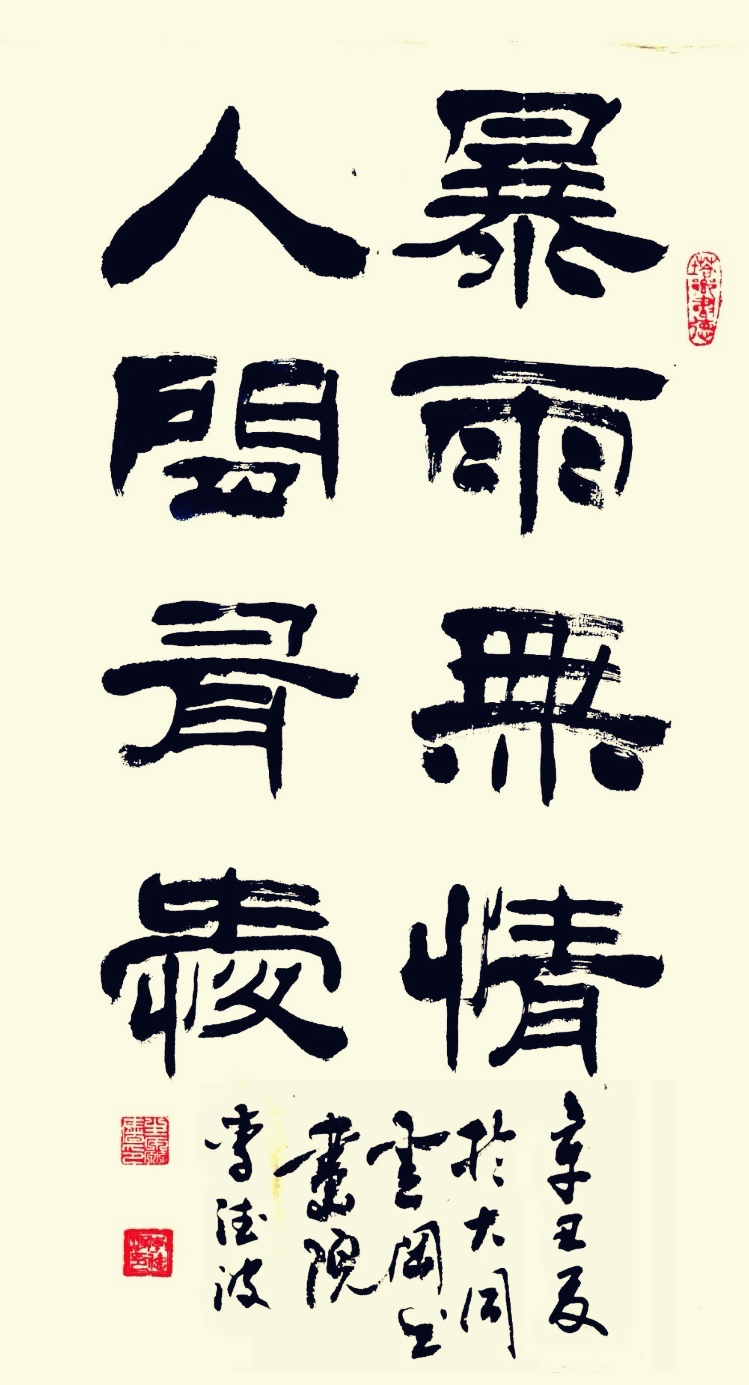 暴雨無情
人間有愛
辛丑夏
於大同
雲岡书
畫院
李德波